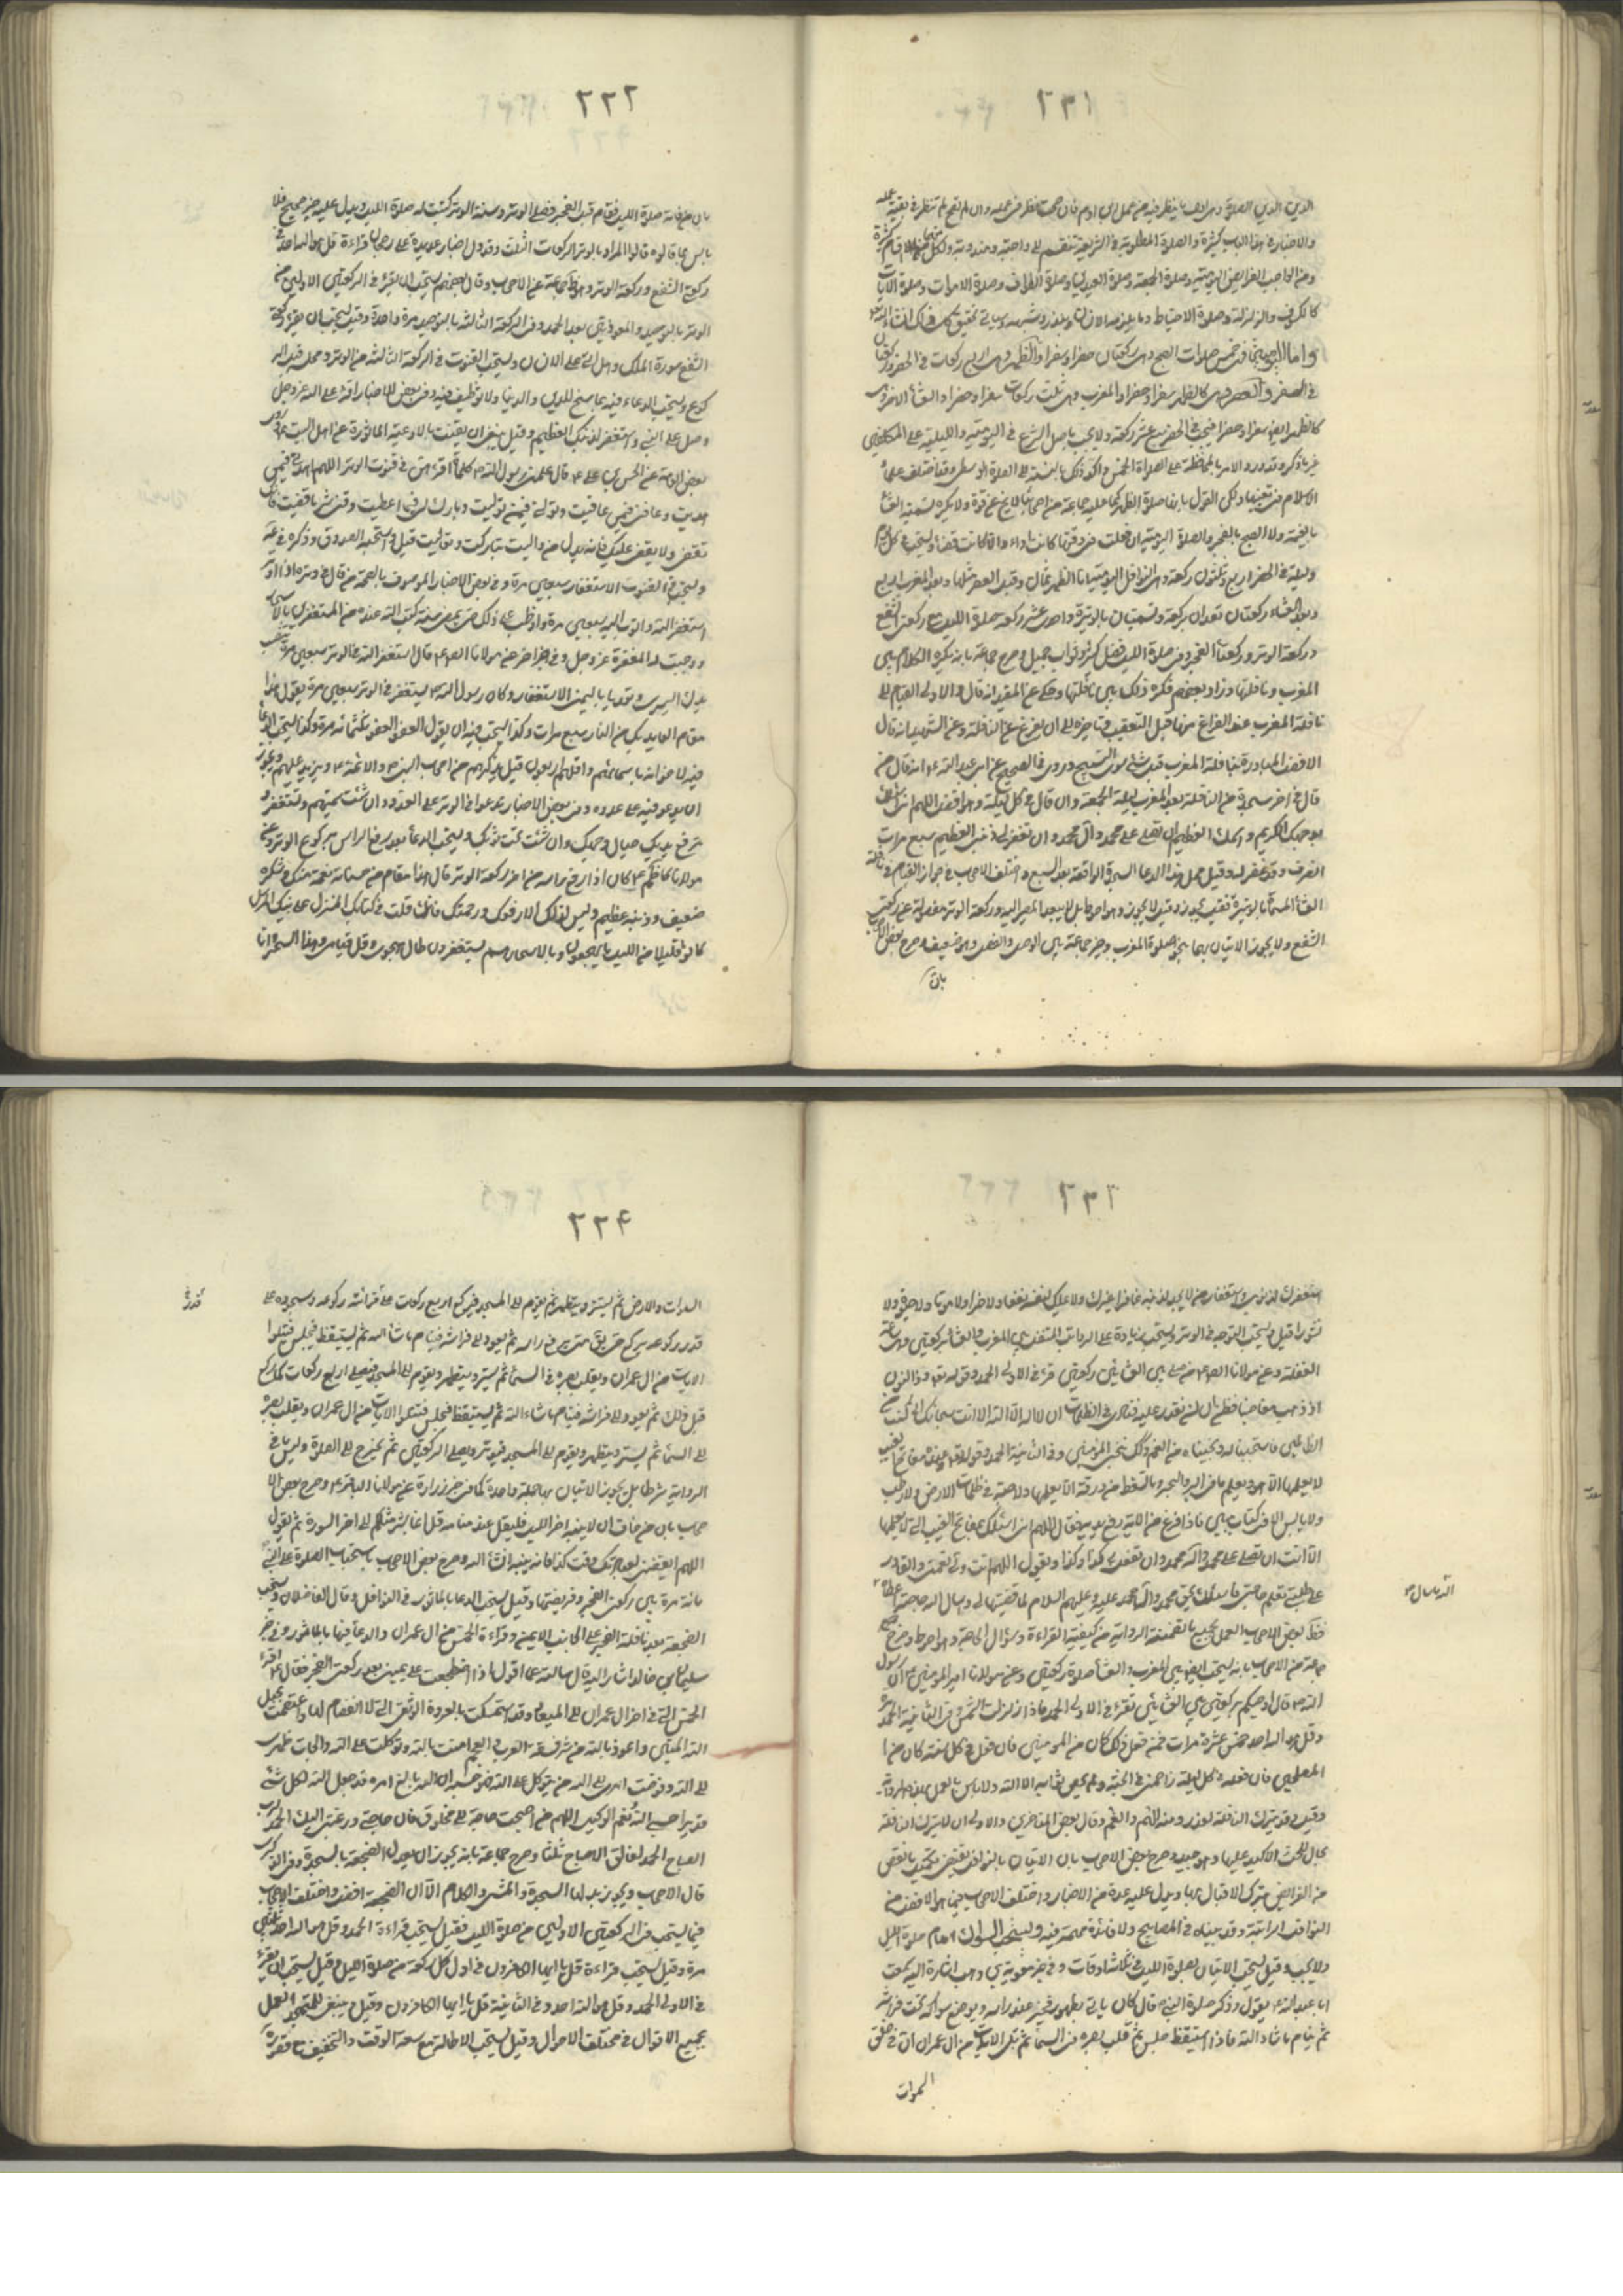 ٢٣١
الدين الصلوة وهي اول ما ينظر فيه من عمل ابن ادم فان صحت نظر في عمله وان لم تصح لم ينظر في بقية عمله
والاخبار في هذا الباب كثيرة والصلوة المطلوبة في الشريعة تنقسم الى واجبة ومندوبة ولكل منهما اقسام كثيرة
ومن الواجب الفرايض اليومية وصلوة الجمعة وصلوة العيدين وصلوة الطواف وصلوة الاموات وصلوة الايات
كالكسوف والزلزلة وصلوة الاحتياط وما يلزمه الانسان بنذر وشبهه وسياتي تحقيق كل ذلك انشاء الله
واما اليومية فخمس صلوات الصبح وهي ركعتان حضرا وسفرا والظهر وهي اربع ركعات في الحضر وركعتان
في السفر والعصر وهي كالظهر سفرا وحضرا والمغرب وهي ثلث ركعات سفرا وحضرا والعشاء الاخرة وهي
كالظهر ايضا سفرا وحضرا فيجب في الحضر سبع عشر ركعة ولا يجب باصل الشرع في اليومية والليلية على المكلفين
غير ما ذكر وقد ورد الامر بالمحافظة على الصلوة الخمس واكد ذلك بالنسبة الى الصلوة الوسطى وقد اختلف علماء
الاسلام في تعيينها ولكن القول بانها صلوة الظهر كما عليه جماعة من اصحابنا لا يخ عن قوة ولا يكره تسمية العشاء
وليلة في الحضر اربع وثلثون ركعة وهي النوافل اليومية اما الظهر ثمان وقبل العصر مثلها وبعد المغرب اربع
وبعد العشاء ركعتان تعدان بركعة وتسميان بالوتيرة واحدى عشر ركعة صلوة الليل مع ركعتي الشفع
وركعة الوتر وركعتا الفجر وفي صلوة الليل فضل كثير وثواب جميل وصرح جماعة بانه يكره الكلام بين
المغرب ونافلتها وزاد بعضهم فكره ذلك بين نافلتها وحكي عن المفيد انه قال والاولى القيام الى
نافلة المغرب عند الفراغ منها قبل التعقيب وتاخيره الى ان يفرغ من النافلة وعن الشهيد انه قال
الافضل المبادرة بنافلة المغرب قبل شئ سوى التسبيح وروى في الصحيح عن ابي عبد الله ع انه قال من
قال في اخر سجدة من النافلة بعد المغرب ليلة الجمعة وان قال في كل ليلة وهو افضل اللهم اني اسئلك
بوجهك الكريم واسمك العظيم ان تصلي على محمد وآل محمد وان تغفر لي ذنبي العظيم سبع مرات
انصرف وقد غفر له وقيل محل هذا الدعا السجدة الواقعة بعد السبع واختلف الاصحاب في جواز القيام في نافلة
الشفع ولا يجوز الاتيان بهما بحوا صلوة المغرب وخير جماعة بين الوصل والفصل وهو ضعيف وصرح بعض الاصحاب
بان
٢٣٢
بان من فاته صلوة الليل فقام قبل الفجر فصلى الوتر وسنة الوتر كتبت له صلوة الليل ويدل عليه خبر صحيح فلا
باس بما قالوه قالوا المراد بالوتر الركعات الثلث وقد دل اخبار عديدة على رجحان قراءة قل هو الله احد في
ركعتي الشفع وركعة الوتر وهو ظ جماعة من الاصحاب وقال بعضهم يستحب ان يقرء في الركعتين الاوليين من
الوتر بالتوحيد والمعوذتين بعد الحمد وفي الركعة الثالثة بالتوحيد مرة واحدة وقيل يستحب ان يقرء ركعة
الشفع سورة الملك وهل اتى على الانسان ويستحب القنوت في الركعة الثالثة من الوتر ومحله قبل الر
كوع ويستحب الدعاء فيه بما سنح للدين والدنيا ولا توظيف فيه وفي بعض الاخبار اثن على الله عز وجل
وصل على النبي واستغفر لذنبك العظيم وقيل ينبغي ان يقنت بالادعية الماثورة عن اهل البيت ع وروى
بعض العامة عن الحسن بن علي ع قال علمني رسول الله ص كلمات اقرئهن في قنوت الوتر اللهم اهدني فيمن
هديت وعافني فيمن عافيت وتولني فيمن توليت وبارك لي فيما اعطيت وقني شر ما قضيت فانك
تقضي ولا يقضى عليك فانه لا يذل من واليت تباركت وتعاليت قيل واستحبه الصدوق وذكره في يه
ويستحب في القنوت الاستغفار سبعين مرة وفي بعض الاخبار الموصوف بالصحة من قال في وتره اذا اوتر
استغفر الله واتوب اليه سبعين مرة وواظب على ذلك حتى يمضي سنة كتب الله عنده من المستغفرين بالاسحار
ووجبت له المغفرة عز وجل وفي خبر اخر عن مولانا الص ع قال استغفر الله في الوتر سبعين مرة تنصب
يدك اليسرى وتعد باليمنى الاستغفار وكان رسول الله ص يستغفر في الوتر سبعين مرة ويقول هذا
مقام العايذ بك من النار سبع مرات وكذا يستحب فيه ان يقول العفو العفو ثلثمائة مرة وكذا يستحب الدعا
فيه لاخوانه باسمائهم واقلهم اربعون قيل يذكرهم من اصحاب النبي ص والائمة ع ويزيد عليهم ويجوز
ان يدعو فيه على عدوه وفي بعض الاخبار تدعو في الوتر على العدو وان شئت سميتهم وتستغفر و
ترفع يديك حيال وجهك وان شئت تحت ثوبك ويستحب الدعاء بعد رفع الراس من ركوع الوتر وعن
مولانا الكاظم ع كان اذا رفع راسه من اخر ركعة الوتر قال هذا مقام من حسناته نعمة منك وشكره
ضعيف وذنبه عظيم وليس لذلك الا رفقك ورحمتك فانك قلت في كتابك المنزل على نبيك المرسل
كانوا قليلا من الليل ما يهجعون وبالاسحار هم يستغفرون طال هجوعي وقل قيامي وهذا السحر وانا
٢٣٣
استغفرك لذنوبي استغفار من لا يجد لذنبه غافرا غيرك ولا يملك لنفسه نفعا ولا ضرا ولا موتا ولا حيوة ولا
نشورا قيل ويستحب التوجه في الوتر ويستحب زيادة على الرواتب المتقدمة بين المغرب والعشاء بركعتين وهي ساعة
الغفلة وعن مولانا الص ع من صلى بين العشائين ركعتين قرء في الاولى الحمد وقوله تع وذا النون
اذ ذهب مغاضبا فظن ان لن نقدر عليه فنادى في الظلمات ان لا اله الا انت سبحانك اني كنت من
الظالمين فاستجبنا له ونجيناه من الغم وكذلك ننجي المؤمنين وفي الثانية الحمد وقوله تع وعنده مفاتح الغيب
لا يعلمها الا هو ويعلم ما في البر والبحر وما تسقط من ورقة الا يعلمها ولا حبة في ظلمات الارض ولا رطب
ولا يابس الا في كتاب مبين فاذا فرغ من الاية رفع يديه وقال اللهم اني اسئلك بمفاتح الغيب التي لا يعلمها
الا انت ان تصلي على محمد وآله محمد وان تفعل بي كذا وكذا ويقول اللهم انت ولي نعمتي والقادر
على طلبتي تعلم حاجتي فاسئلك بحق محمد وآل محمد عليه وعليهم السلام لما قضيتها لي وسال الله حاجته اعطاه
الله ما سال ص
جماعة من الاصحاب بانه يستحب ايضا بين المغرب والعشاء صلوة ركعتين وعن مولانا امير المؤمنين ع ان رسول
الله ص قال اوصيكم بركعتين بين العشائين تقرء في الاولى الحمد واذا زلزلت ثلث عشرة مرة وفي الثانية الحمد
وقل هو الله احد خمس عشرة مرات فمن فعل ذلك كان من المؤمنين فان فعل في كل سنة كان من ا
المصلحين فان فعله في كل ليلة زاحمني في الجنة ولم يحص ثوابه الا الله ولا باس بالعمل بهذه الرواية
وقيل وقد يترك النافلة لعذر ومنه الهم والغم وقال بعض المتاخرين والاولى ان لا يترك النافلة
بحال للحث الاكيد عليها وهو جيد وصرح بعض الاصحاب بان الاتيان بالنوافل يقتضي تكميل ما نقص
من الفرايض بترك الاقبال بها ويدل عليه عدة من الاخبار واختلف الاصحاب فيما هو الافضل من
النوافل الراتبة وقد بيناه في المصابيح ولا فائدة مهمة فيه ويستحب السواك امام صلوة الليل
ولا يجب وقيل يستحب الاتيان بصلوة الليل في ثلاث اوقات وفي خبر معوية بن وهب اشارة اليه سمعت
ابا عبد الله ع يقول وذكر صلوة النبي ص قال كان ياتي بطهور فيخمر عند راسه ويوضع سواكه تحت فراشه
ثم ينام ما شاء الله فاذا استيقظ جلس ثم قلب بصره في السماء ثم تلى الايات من ال عمران ان في خلق
السموات
٢٣٤
السموات والارض ثم يستن ويتطهر ثم يقوم الى المسجد فيركع اربع ركعات على قدر قرائته ركوعه وسجوده على
قدر ركوعه يركع حتى يق متى يرفع راسه ثم يعود الى فراشه فينام ما شاء الله ثم يستيقظ فيجلس فيتلوا
الايات من ال عمران ويقلب بصره في السماء ثم يستن ويتطهر ويقوم الى المسجد فيصلي اربع ركعات كما ركع
قبل ذلك ثم يعود الى فراشه فينام ما شاء الله ثم يستيقظ فيجلس فيتلوا الايات من ال عمران ويقلب بصره
الى السماء ثم يستن ويتطهر ويقوم الى المسجد فيوتر ويصلي الركعتين ثم يخرج الى الصلوة وليس ما في
الرواية شرطا بل يجوز الاتيان بها جملة واحدة كما في خبر زرارة عن مولانا الباقر ع وصرح بعض الا
صحاب بان من خاف ان لا ينتبه اخر الليل فليقل عند منامه قل انما انا بشر مثلكم الى اخر السورة ثم يقول
اللهم ايقظني لعبادتك وقت كذا فانه ينتبه انشاء الله وصرح بعض الاصحاب باستحباب الصلوة على النبي
مائة مرة بين ركعتي الفجر وفريضتها وقيل يستحب الدعا بالماثور في النوافل وقال الفاضلان ويستحب
الضجعة بعد نافلة الفجر على الجانب الايمن وقراءة الخمس من ال عمران والدعا فيها بالماثور وفي خبر
سليمان بن خالد اشار اليه قال سالته عما اقول اذا اضطجعت على يميني بعد ركعتي الفجر فقال ع اقرء
الخمس التي في اخر ال عمران الى الميعاد وقل استمسكت بالعروة الوثقى التي لا انفصام لها واعتصمت بحبل
الله المتين واعوذ بالله من شر فسقة العرب والعجم امنت بالله وتوكلت على الله والجات ظهري
الى الله وفوضت امري الى الله من يتوكل على الله فهو حسبه ان الله بالغ امره قد جعل الله لكل شئ
قدرا حسبي الله ونعم الوكيل اللهم من اصبحت حاجته الى مخلوق فان حاجتي ورغبتي اليك الحمد لرب
الصباح الحمد لفالق الاصباح ثلثا وصرح جماعة بانه يجوز ان يبدل الضجعة بالسجدة وفي الذكرى
قال الاصحاب ويجوز بدلها السجدة والمشي والكلام الا ان الضجعة افضل واختلف الاصحاب
فيما يستحب في الركعتين الاوليين من صلوة الليل فقيل يستحب قراءة الحمد وقل هو الله احد ثلثين
مرة وقيل يستحب قراءة قل يا ايها الكافرون في اول كل ركعة من صلوة الليل وقيل يستحب ان يقرء
في الاولى الحمد وقل هو الله احد وفي الثانية قل يا ايها الكافرون وقيل ينبغي للمتهجد العمل
بجميع الاقوال في مختلف الاحوال وقيل يستحب الاطالة مع سعة الوقت والتخفيف مع قصره